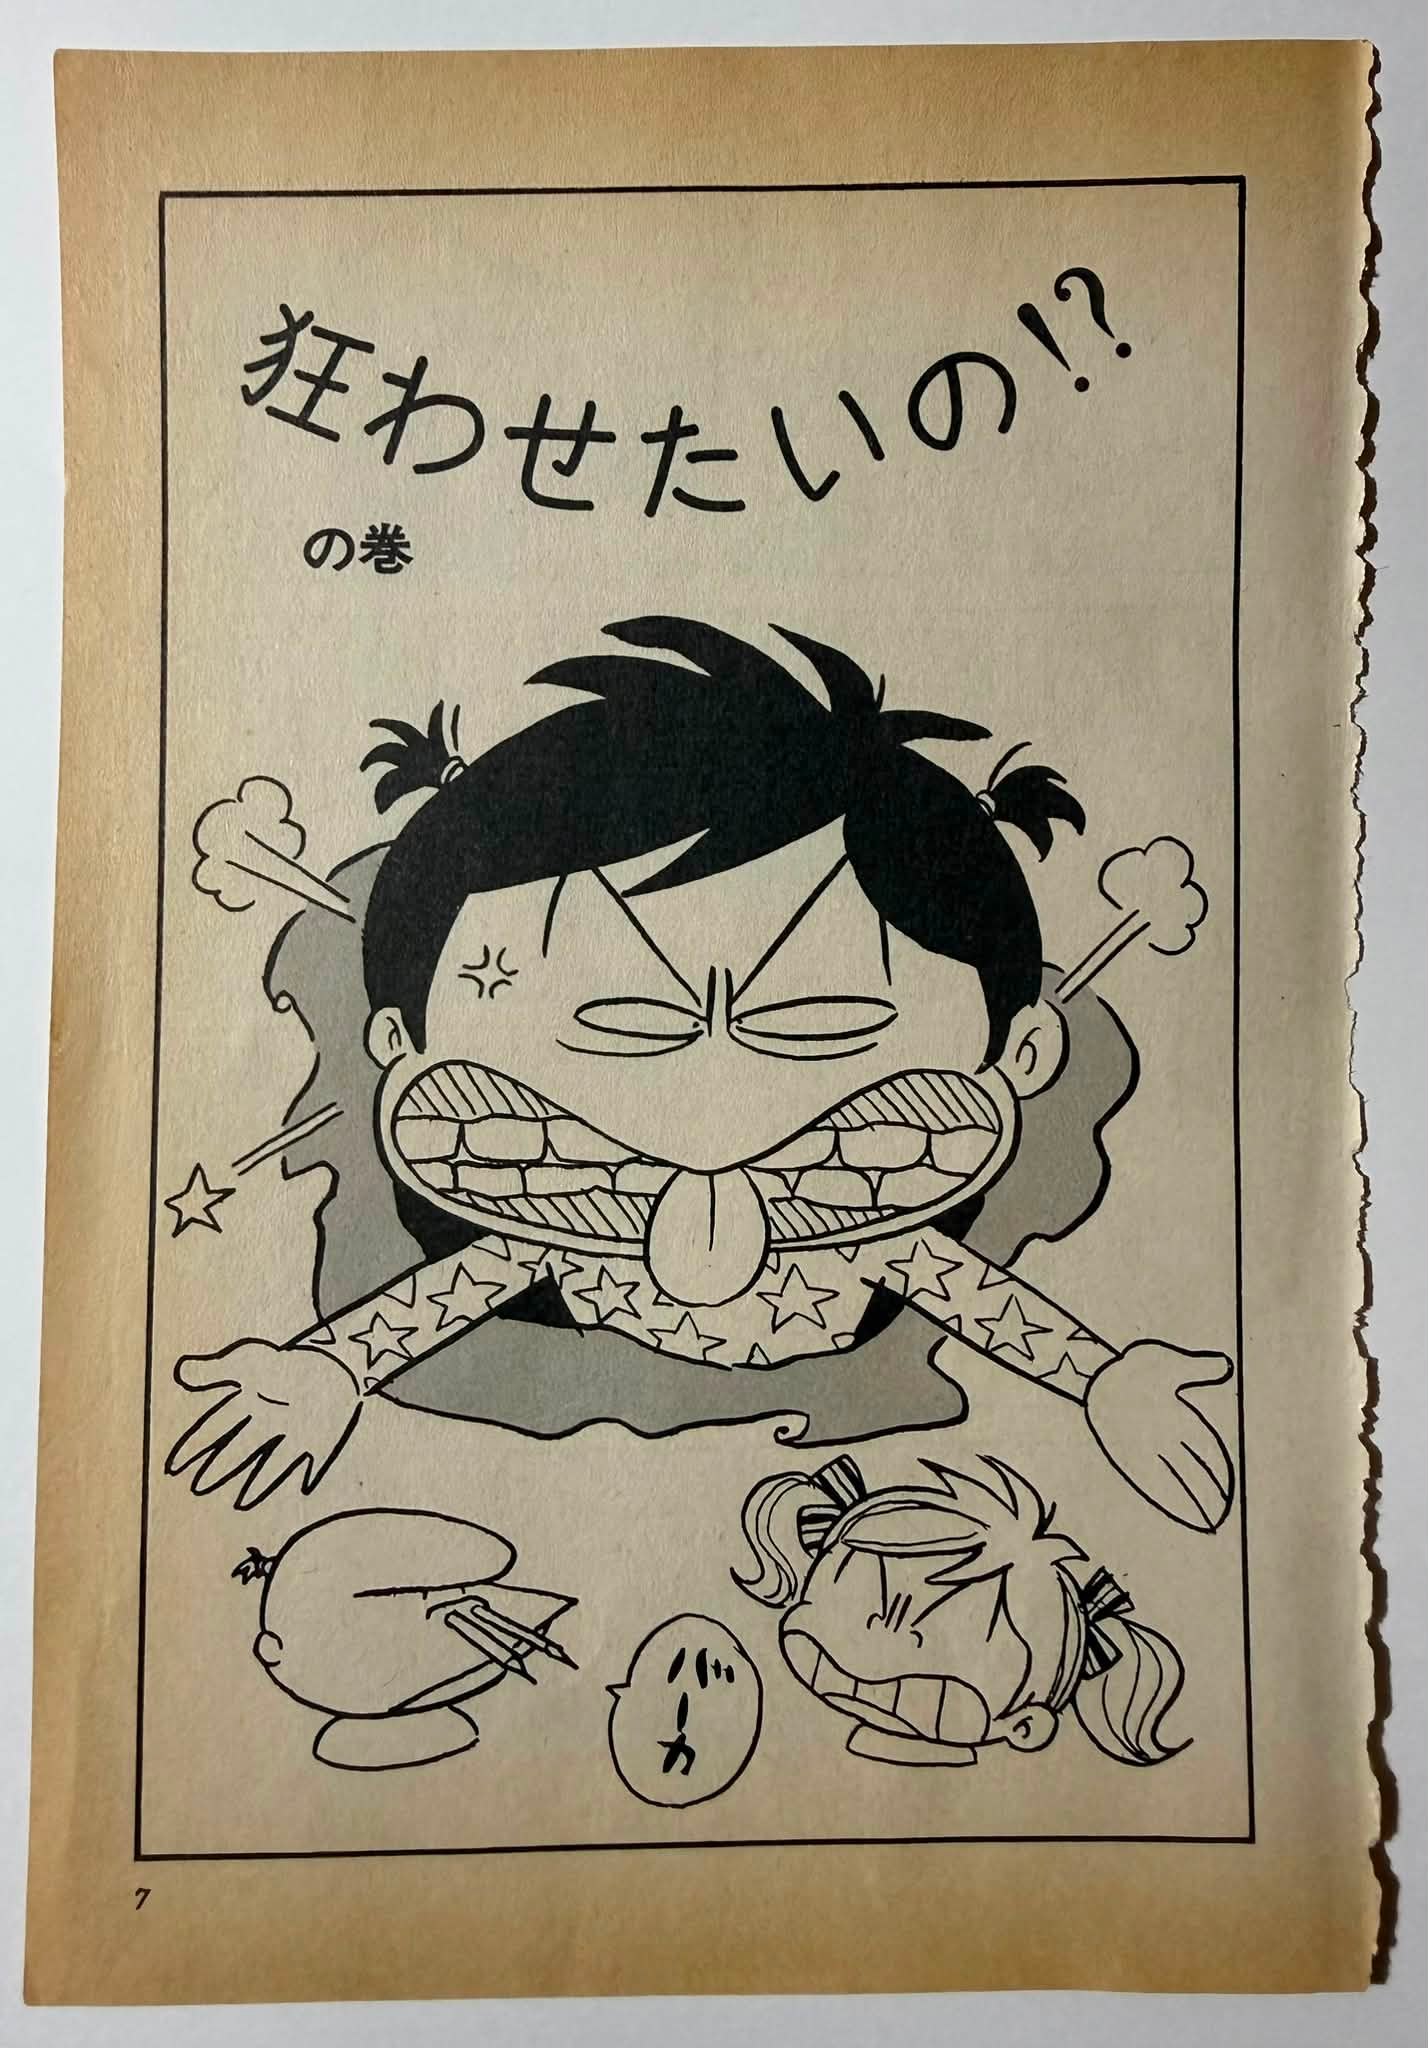 狂わせたいの!?
の巻
バーカ
7